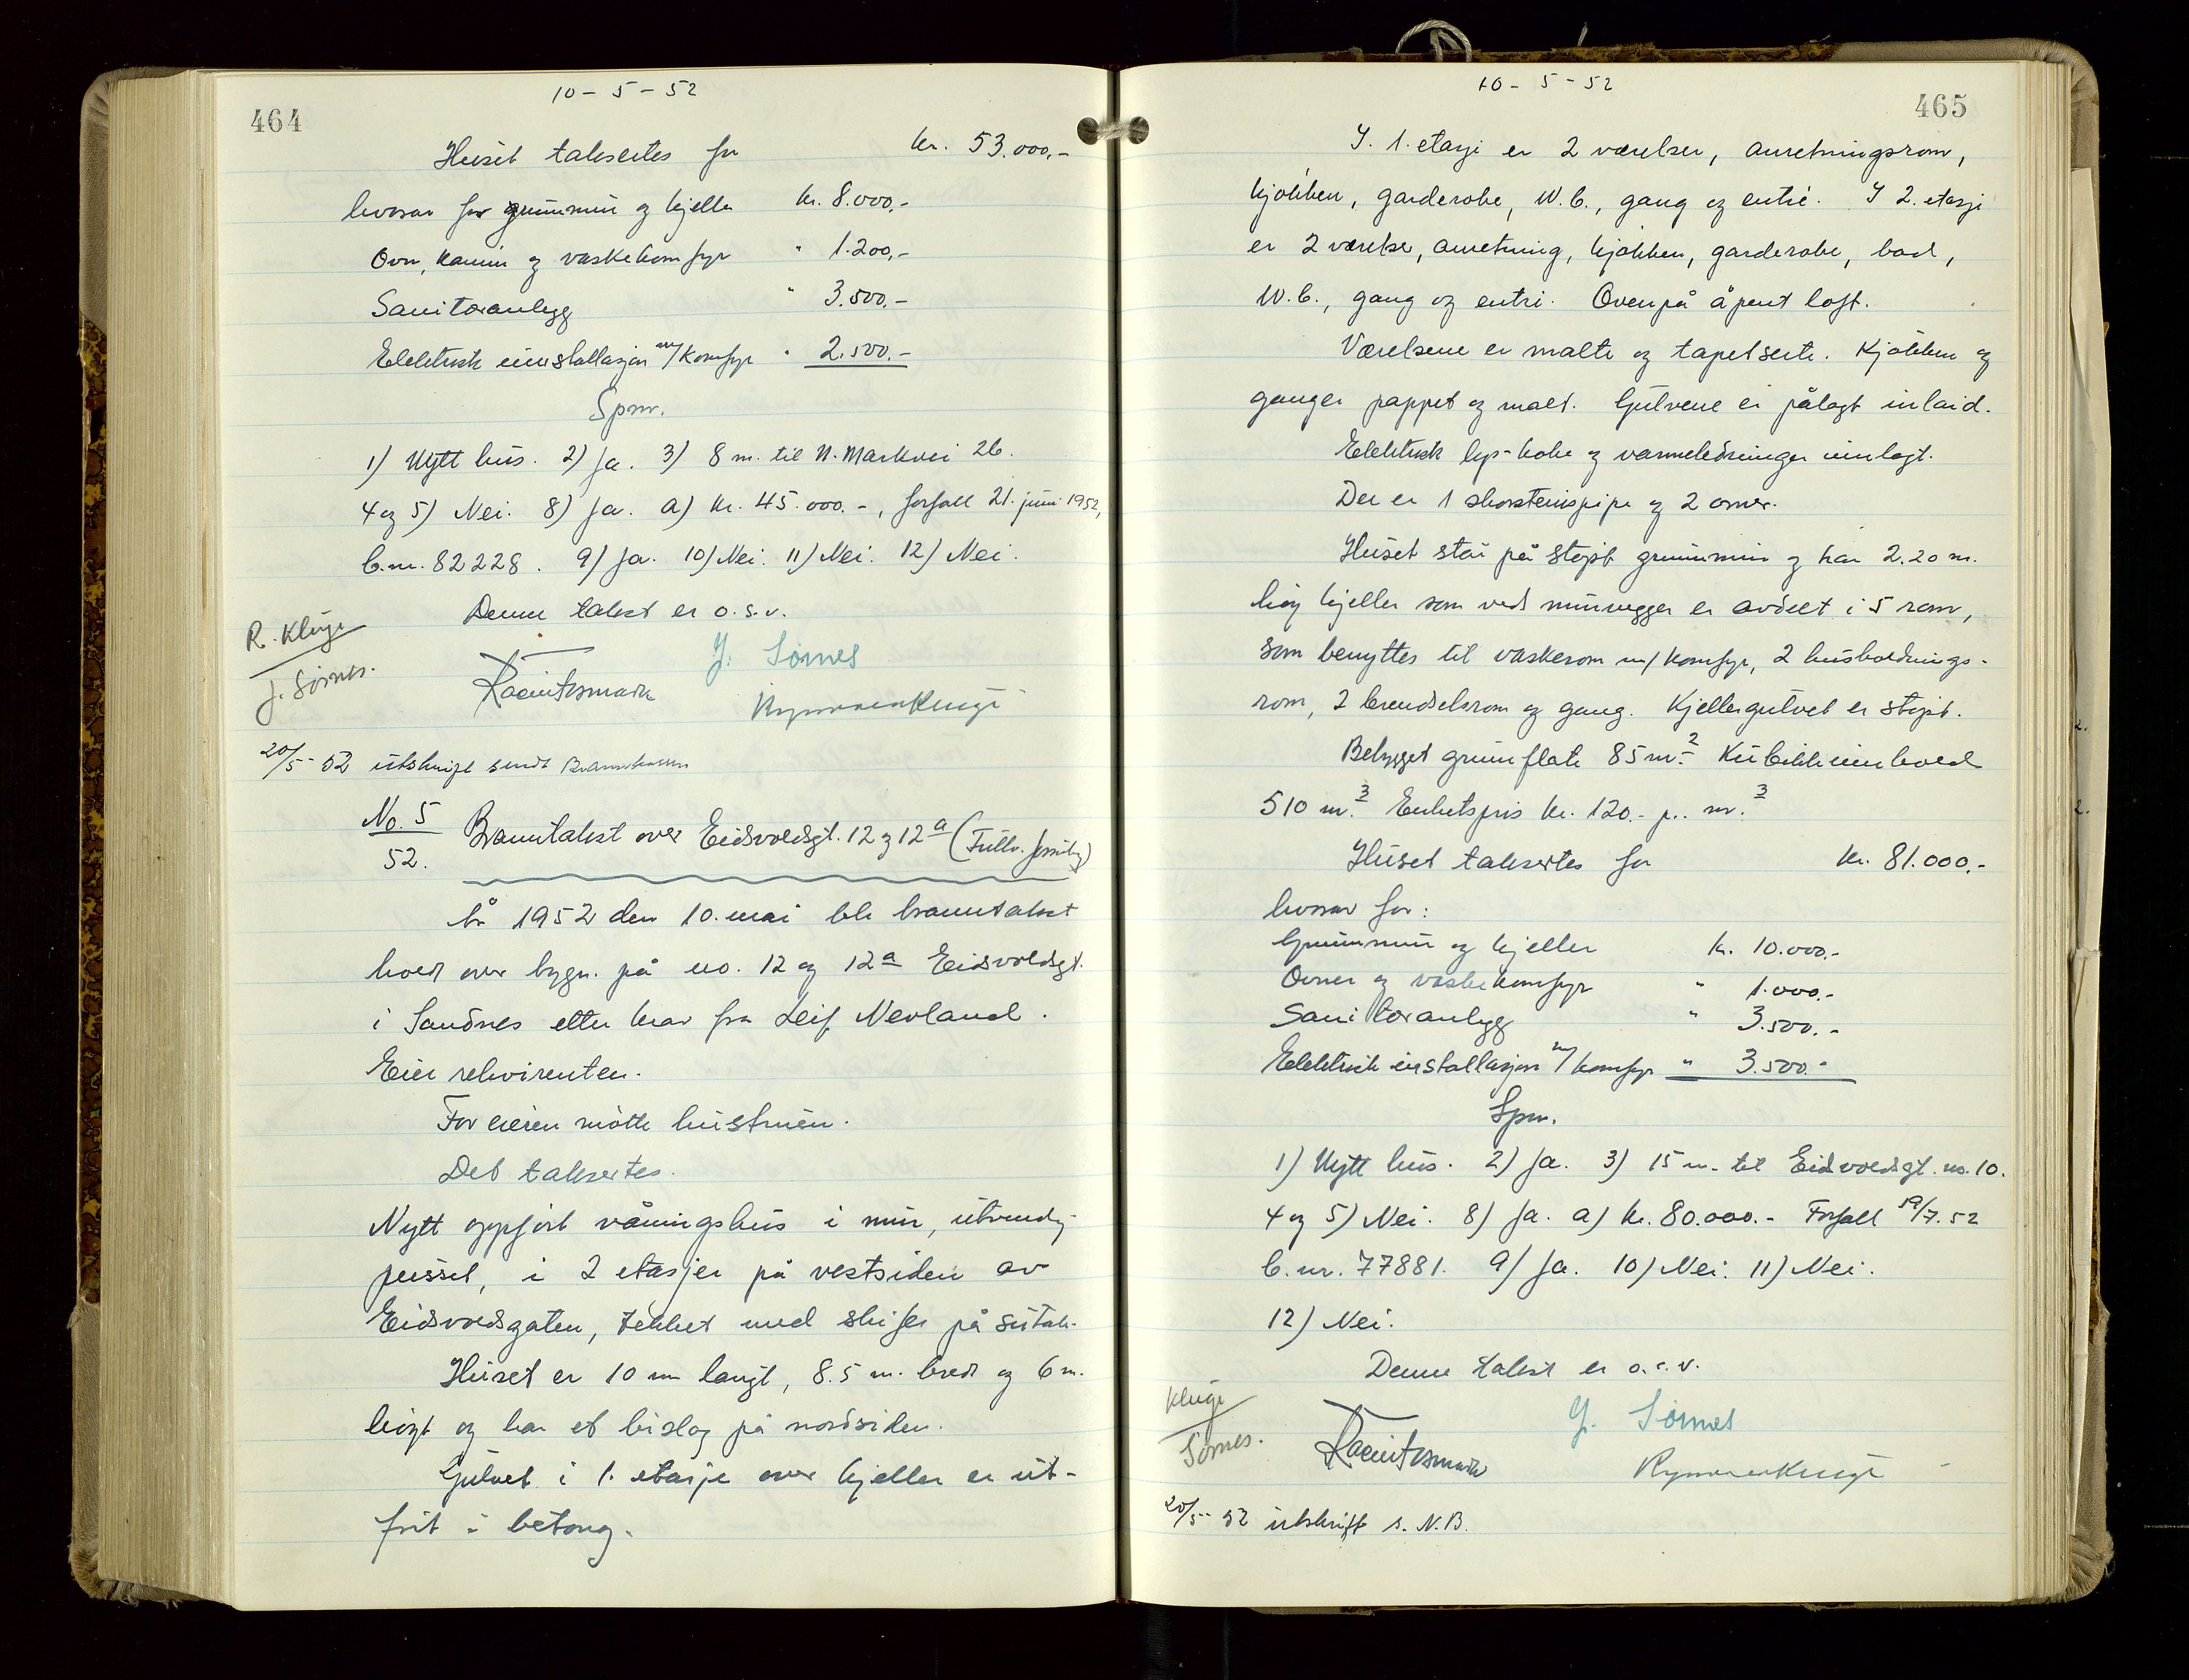 10-5-52
464
Huset takseres for kr. 53.000,-
hvorav for grunnmur og kjeller kr. 8.000,-
Ovn, kamin og vaskekomfyr " 1.200,-
Sanitæranlegg " 3.500.-
Elektrisk innstallasjon m/komfyr " 2.500.-
Spm.
1) Nytt hus. 2) Ja. 3) 8 m. til N. Markvei 26.
4 og 5) Nei. 8) Ja. a) kr. 45.000.-, forfall 21. juni 1952,
b. nr. 82228. 9) Ja. 10) Nei. 11) Nei. 12) Nei.
Denne takst er o.s.v.
R. Kluge
J. Sørnes.
J. Sørnes
20/5-52 utskrift sendt Brannkassen
No. 5
52.
Branntakst over Eidsvoldsgt. 12 og 12a
År 1952 den 10. mai ble branntakst
hold over bygn. på no. 12 og 12a Eidsvoldsgt.
i Sandnes etter krav fra Leif Nevland.
Eier rekvirenten.
For eieren møtte hustruen.
Det takseres.
Nytt oppført våningshus i mur, utvendig
pusset, i 2 etasjer på vestsiden av
Eidsvoldsgaten, tekket med skifer på sutak.
Huset er 10 m langt, 8.5 m. bredt og 6 m.
høgt og har et bislag på nordsiden.
Gulvet i 1. etasje over kjeller er ut-
ført i betong.
10-5-52
465
I. 1. etasje er 2 værelser, anretningsrom,
kjøkken, garderobe, W.C., gang og entré. I 2. etasje
er 2 værelse, anretning, kjøkken, garderobe, bad,
W.C., gang og entré. Ovenpå åpent loft.
Værelsene er malte og tapetserte. Kjøkken og
ganger pappet og malt. Gulvene er pålagt inlaid.
Elektrisk lys- koke og varmeledninger innlagt.
Der er 1 skorsteinspipe og 2 ovner.
Huset står på støpt grunnmur og har 2.20 m.
høg kjeller som ved murvegger er avdelt i 5 rom,
som benyttes til vaskerom m/ komfyr, 2 husholdnings-
rom, 2 brendselsrom og gang. Kjellergulvet er støpt.
Bebygget grunnflate 85 m.2 Kubikkinnhold
510 m.3 Enhetspris kr. 120.- p. m.3
Huset takseres for kr. 81.000.-
hvorav for:
Grunnmur og kjeller kr. 10.000.-
Ovner og vaskekomfyr " 1.000.-
Sanitæranlegg " 3.500.-
Elektrisk installasjon m/komfyr " 3.500.-
Spm.
1) Nytt hus. 2) Ja. 3) 15 m. til Eidsvoldsgt. no. 10.
4 og 5) Nei. 8) Ja. a) kr. 80.000.- Forfall 19/7.52
b. nr. 77881. 9) Ja. 10) Nei. 11) Nei.
12) Nei.
Denne takst er o.s.v.
Kluge
Sørnes.
J. Sørnes
20/5-52 utskrift s. N.B.